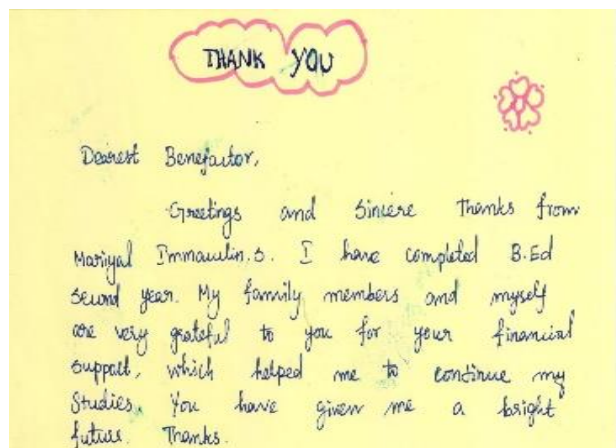 THANK YOU
Dearest Benefactor,
Greetings and Sincere Thanks from
Mariyal Immaculin.S. I have completed B.Ed
second year. My family members and myself
are very grateful to you for your financial
support, which helped me to continue my
Studies. You have given me a bright
future. Thanks.